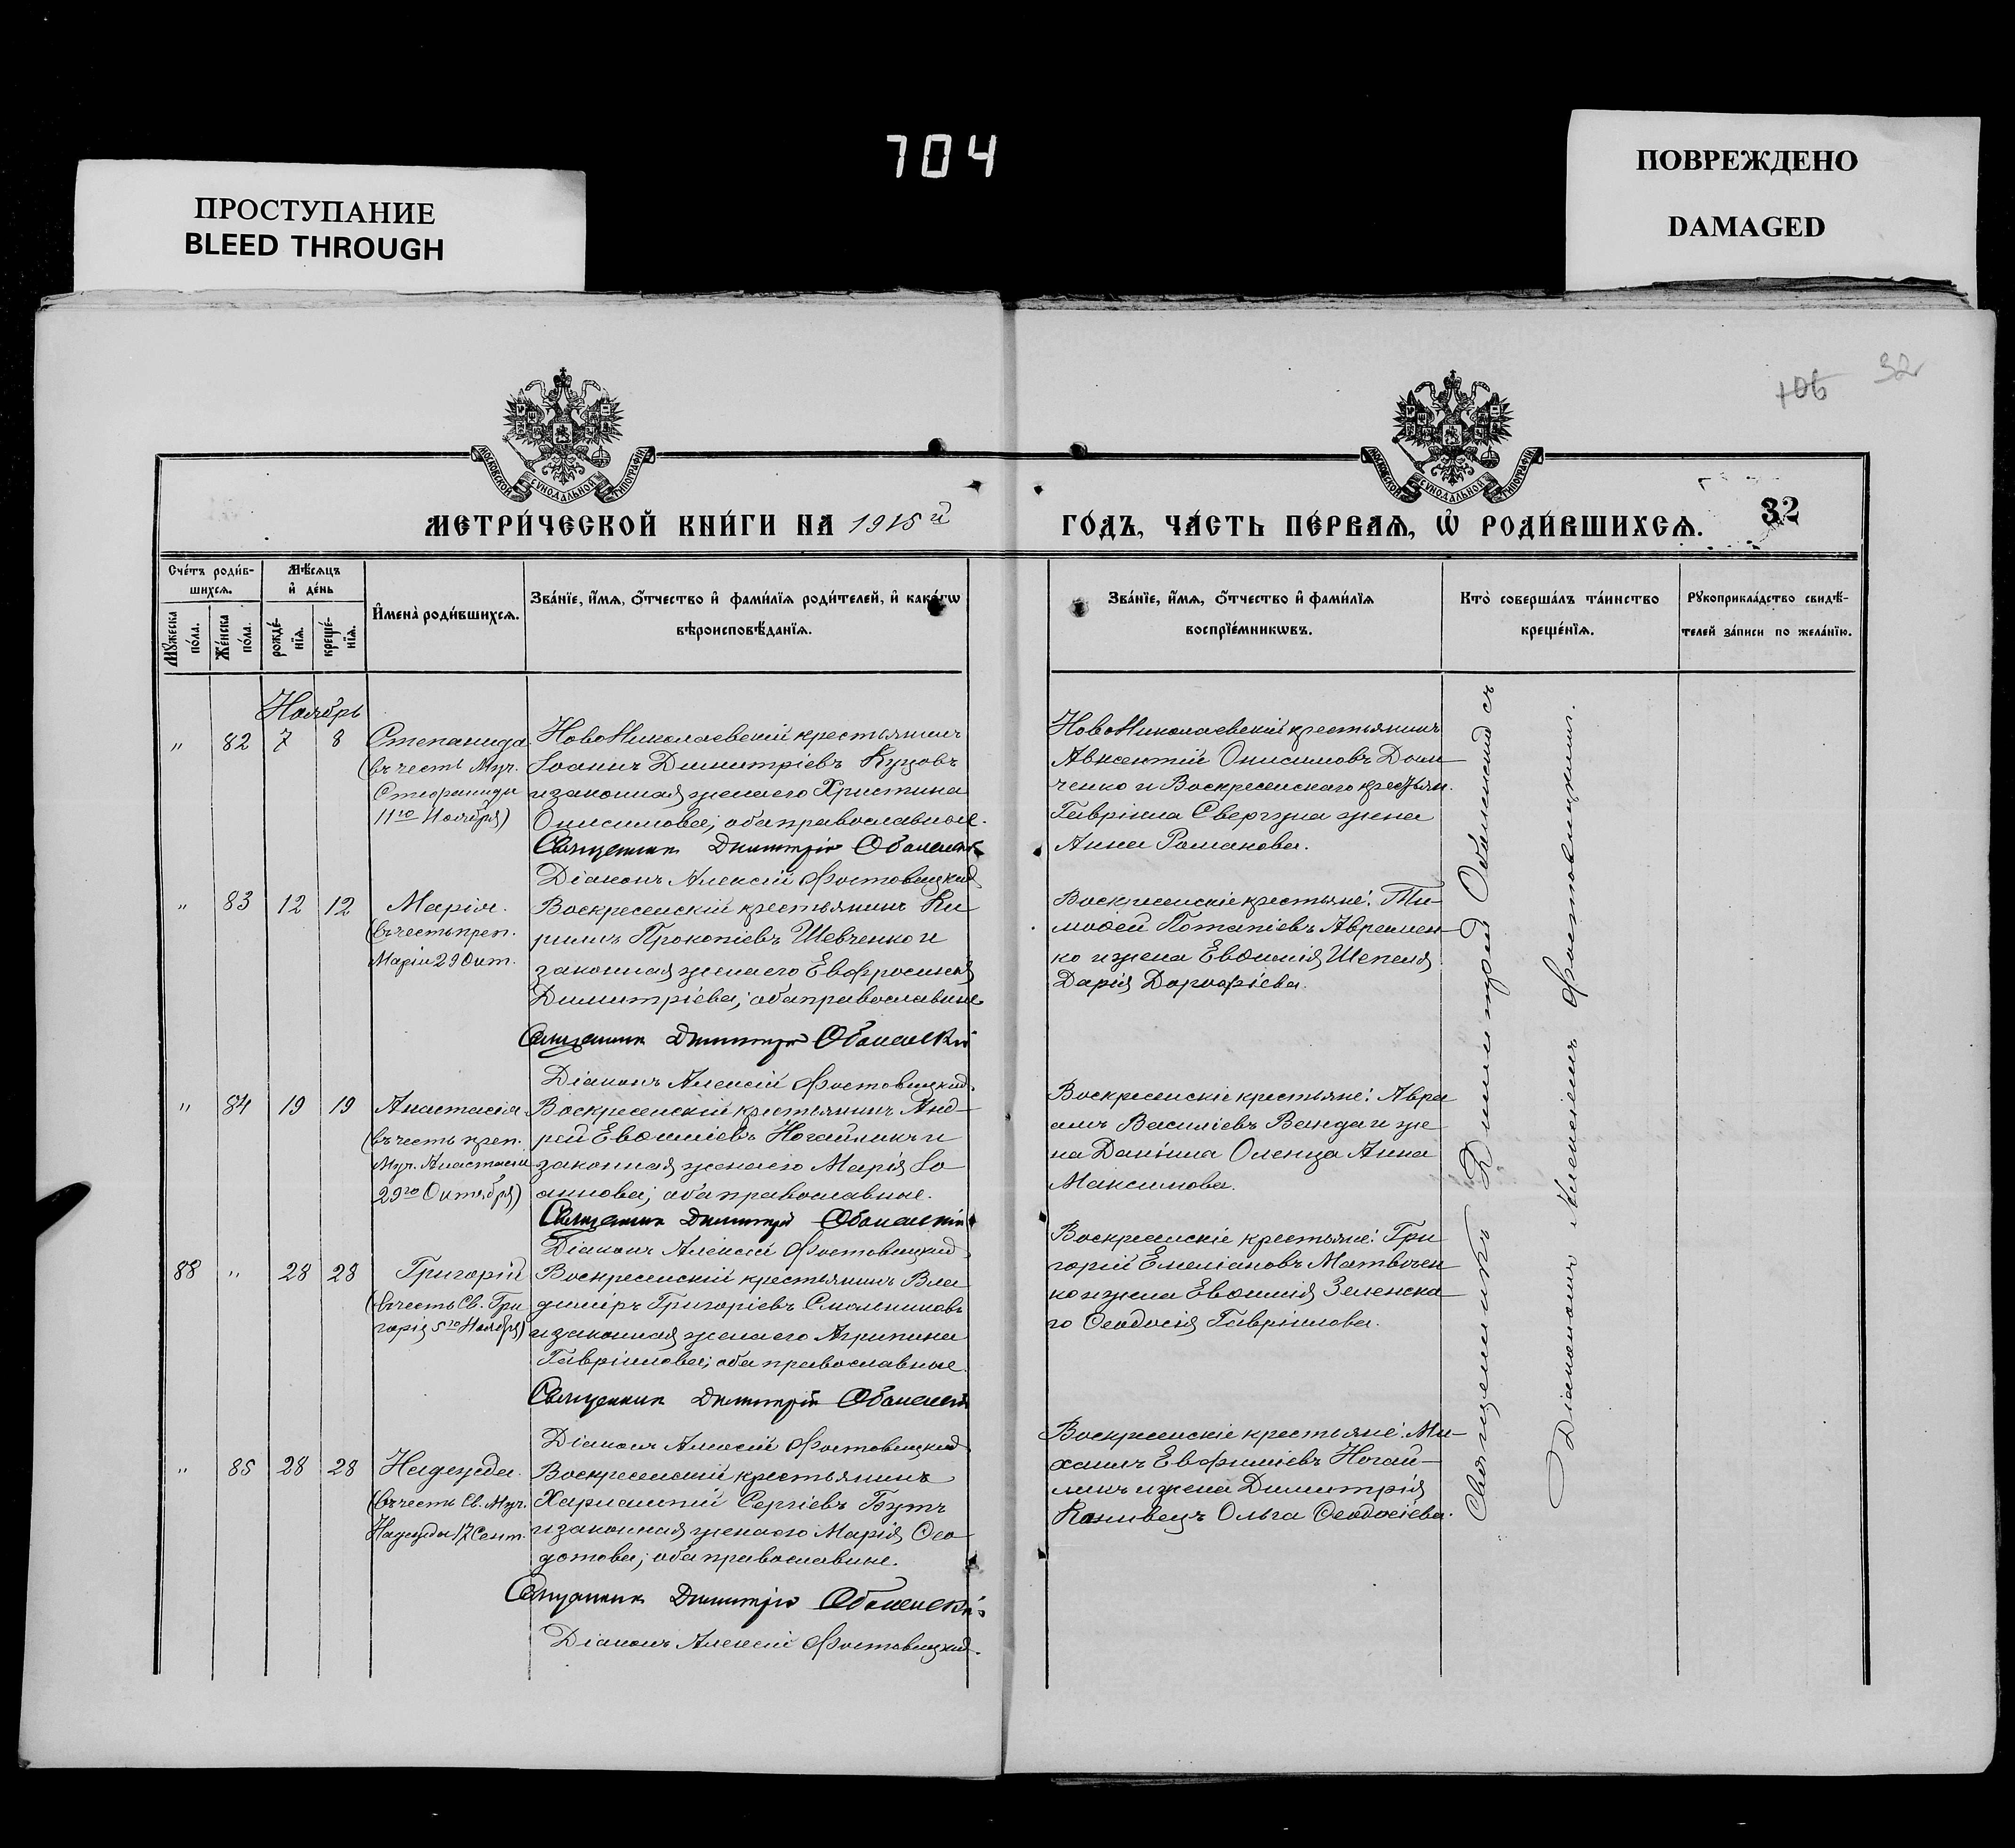 704
ПРОСТУПАНИЕ
BLEED THROUGH
ПОВРЕЖДЕНО
DAMAGED
106 32
МОСКОВСКОЙ СѴНОДАЛЬНОЙ ТИПОГРАФІИ
МОСКОВСКОЙ СѴНОДАЛЬНОЙ ТИПОГРАФІИ
МЕТРИ́ЧЕСКОЙ КНИ́ГИ НА 1915й ГО́ДЪ, ЧА́СТЬ ПЕ́РВАѦ, Ѡ҆ РОДИ́ВШИХСѦ. 32
Сче́тъ роди́в-
шихсѧ.
Мѣ́сѧцъ
и҆ де́нь
Мꙋ́жеска по́ла.
Же́нска по́ла.
рожде́-
нїѧ.
креще́-
нїѧ.
И҆мена̀ роди́вшихсѧ.
Зва́нїе, и҆́мѧ, ѻ҆́тчество и҆ фами́лїѧ роди́телей, и҆ како́гѡ
вѣроисповѣ́данїѧ.
Зва́нїе, и҆́мѧ, ѻ҆́тчество и҆ фами́лїѧ
воспрїе́мникѡвъ.
Кто̀ соверша́лъ та́инство
креще́нїѧ.
Рꙋкоприкла́дство свидѣ́-
телей за́писи по жела́нїю.
Ноябрь
" 82 7 8
Степанида
(въ честь Муч.
Стефаниды
11го Ноября)
НовоНиколаевскій крестьянинъ
Іоаннъ Димитріевъ Куцовъ
и законная жена его Христина
Онисимова; оба православные.
Священник Димитрій Оболенск
Діаконъ Алексій Фостовицкий
НовоНиколаевскій крестьянинъ
Авксентій Онисимовъ Дом
ченко и Воскресенскаго крестьян.
Гавріила Свергуна жена
Анна Романова.
" 83 12 12
Марія.
(въ честь преп.
Маріи 29 Окт.
Воскресенскій крестьянинъ Ки
риллъ Прокопіевъ Шевченко и
законная жена его Евфросинія
Димитріева; оба православные
Священник Димитрій Оболенскій
Діаконъ Алексій Фостовицкий.
Воскресенскіе крестьяне: Ти-
моѳей Потапіевъ Авремен-
ко и жена Евѳимія Шепеля
Дарія Дороѳіева.
" 84 19 19
Анастасія
(въ честь преп.
Муч. Анастасіи
29го Октября)
Воскресенскій крестьянинъ Анд-
рей Евѳиміевъ Ногайникъ и
законная жена его Марія Іо
аннова; оба православные.
Священник Димитрій Оболенскій
Діаконъ Алексій Фостовицкий
Воскресенскіе крестьяне: Авра
амъ Василіевъ Ванда и же
на Даніила Оленца Анна
Максимова.
88 " 28 28
Григорій
(въ честь Св. Гри
горія 5го Ноября)
Воскресенскій крестьянинъ Вла
диміръ Григоріевъ Смолениковъ
и законная жена его Агрипина
Гавріилова; оба православные.
Священник Димитрій Оболенскій
Діаконъ Алексій Фостовицкий
Воскресенскіе крестьяне: Гри
горій Емеліановъ Матвѣчен
ко и жена Евѳимія Зеленска
го Ѳеодосія Гавріилова.
" 85 28 28
Надежда.
(въ честь Св. Муч.
Надежды 17 Сент.
Воскресенскій крестьянинъ
Харлампій Сергіевъ Бутъ
и законная жена его Марія Ѳео
дотова; оба православные.
Священник Димитрій Оболенскій
Діаконъ Алексій Фостовицкий.
Воскресенскіе крестьяне: Ми-
хаилъ Евфиміевъ Ногай-
никъ и жена Димитрія
Канивецъ Ольга Ѳеодосіева.
Священникъ Димитрий Оболенский съ
Діакономъ Алексіемъ Фостовицкимъ.